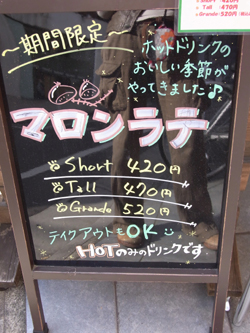 Short 420円
Tall 470円
Grande 520円
～期間限定～
ホットドリンクの
おいしい季節が
やってきました♪
マロンラテ
Short 420円
Tall 470円
Grande 520円
テイクアウトもOK
HOTのみのドリンクです